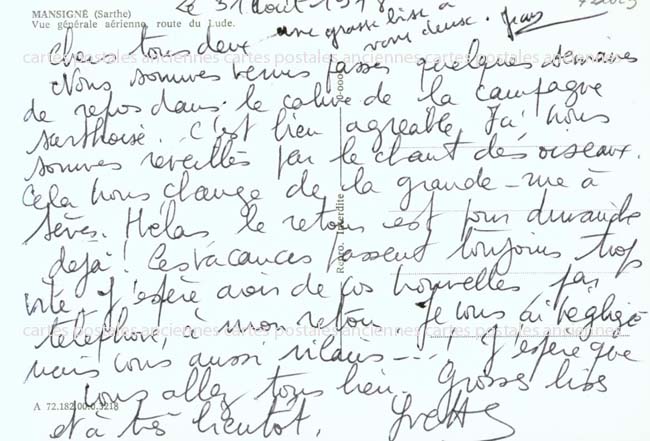 MANSIGNÉ (Sarthe)
Vue générale aérienne, route du Lude.
Le 31 Août 1978
une grosse bise à
vous deux. Jean
Chers tous deux
cartes postales anciennes cartes postales anciennes cartes postales anciennes
Nous sommes venus passer quelques semaines
de repos dans le calme de la campagne
sarthoise. C'est bien agréable. Ici nous
sommes réveillés par le chant des oiseaux.
Cela nous change de la grande-rue à
Sèvres. Hélas le retour est pour dimanche
déjà! Les vacances passent toujours trop
vite. J'espère avoir de vos nouvelles par
téléphone, à mon retour. Je vous ai négligé
cartes postales anciennes cartes postales anciennes cartes postales anciennes
mais vous aussi silence ---! J'espère que
vous allez tous bien. Grosses bises
A 72.182.00.0.3218
et à très bientôt. Yvette
Repro. Interdite